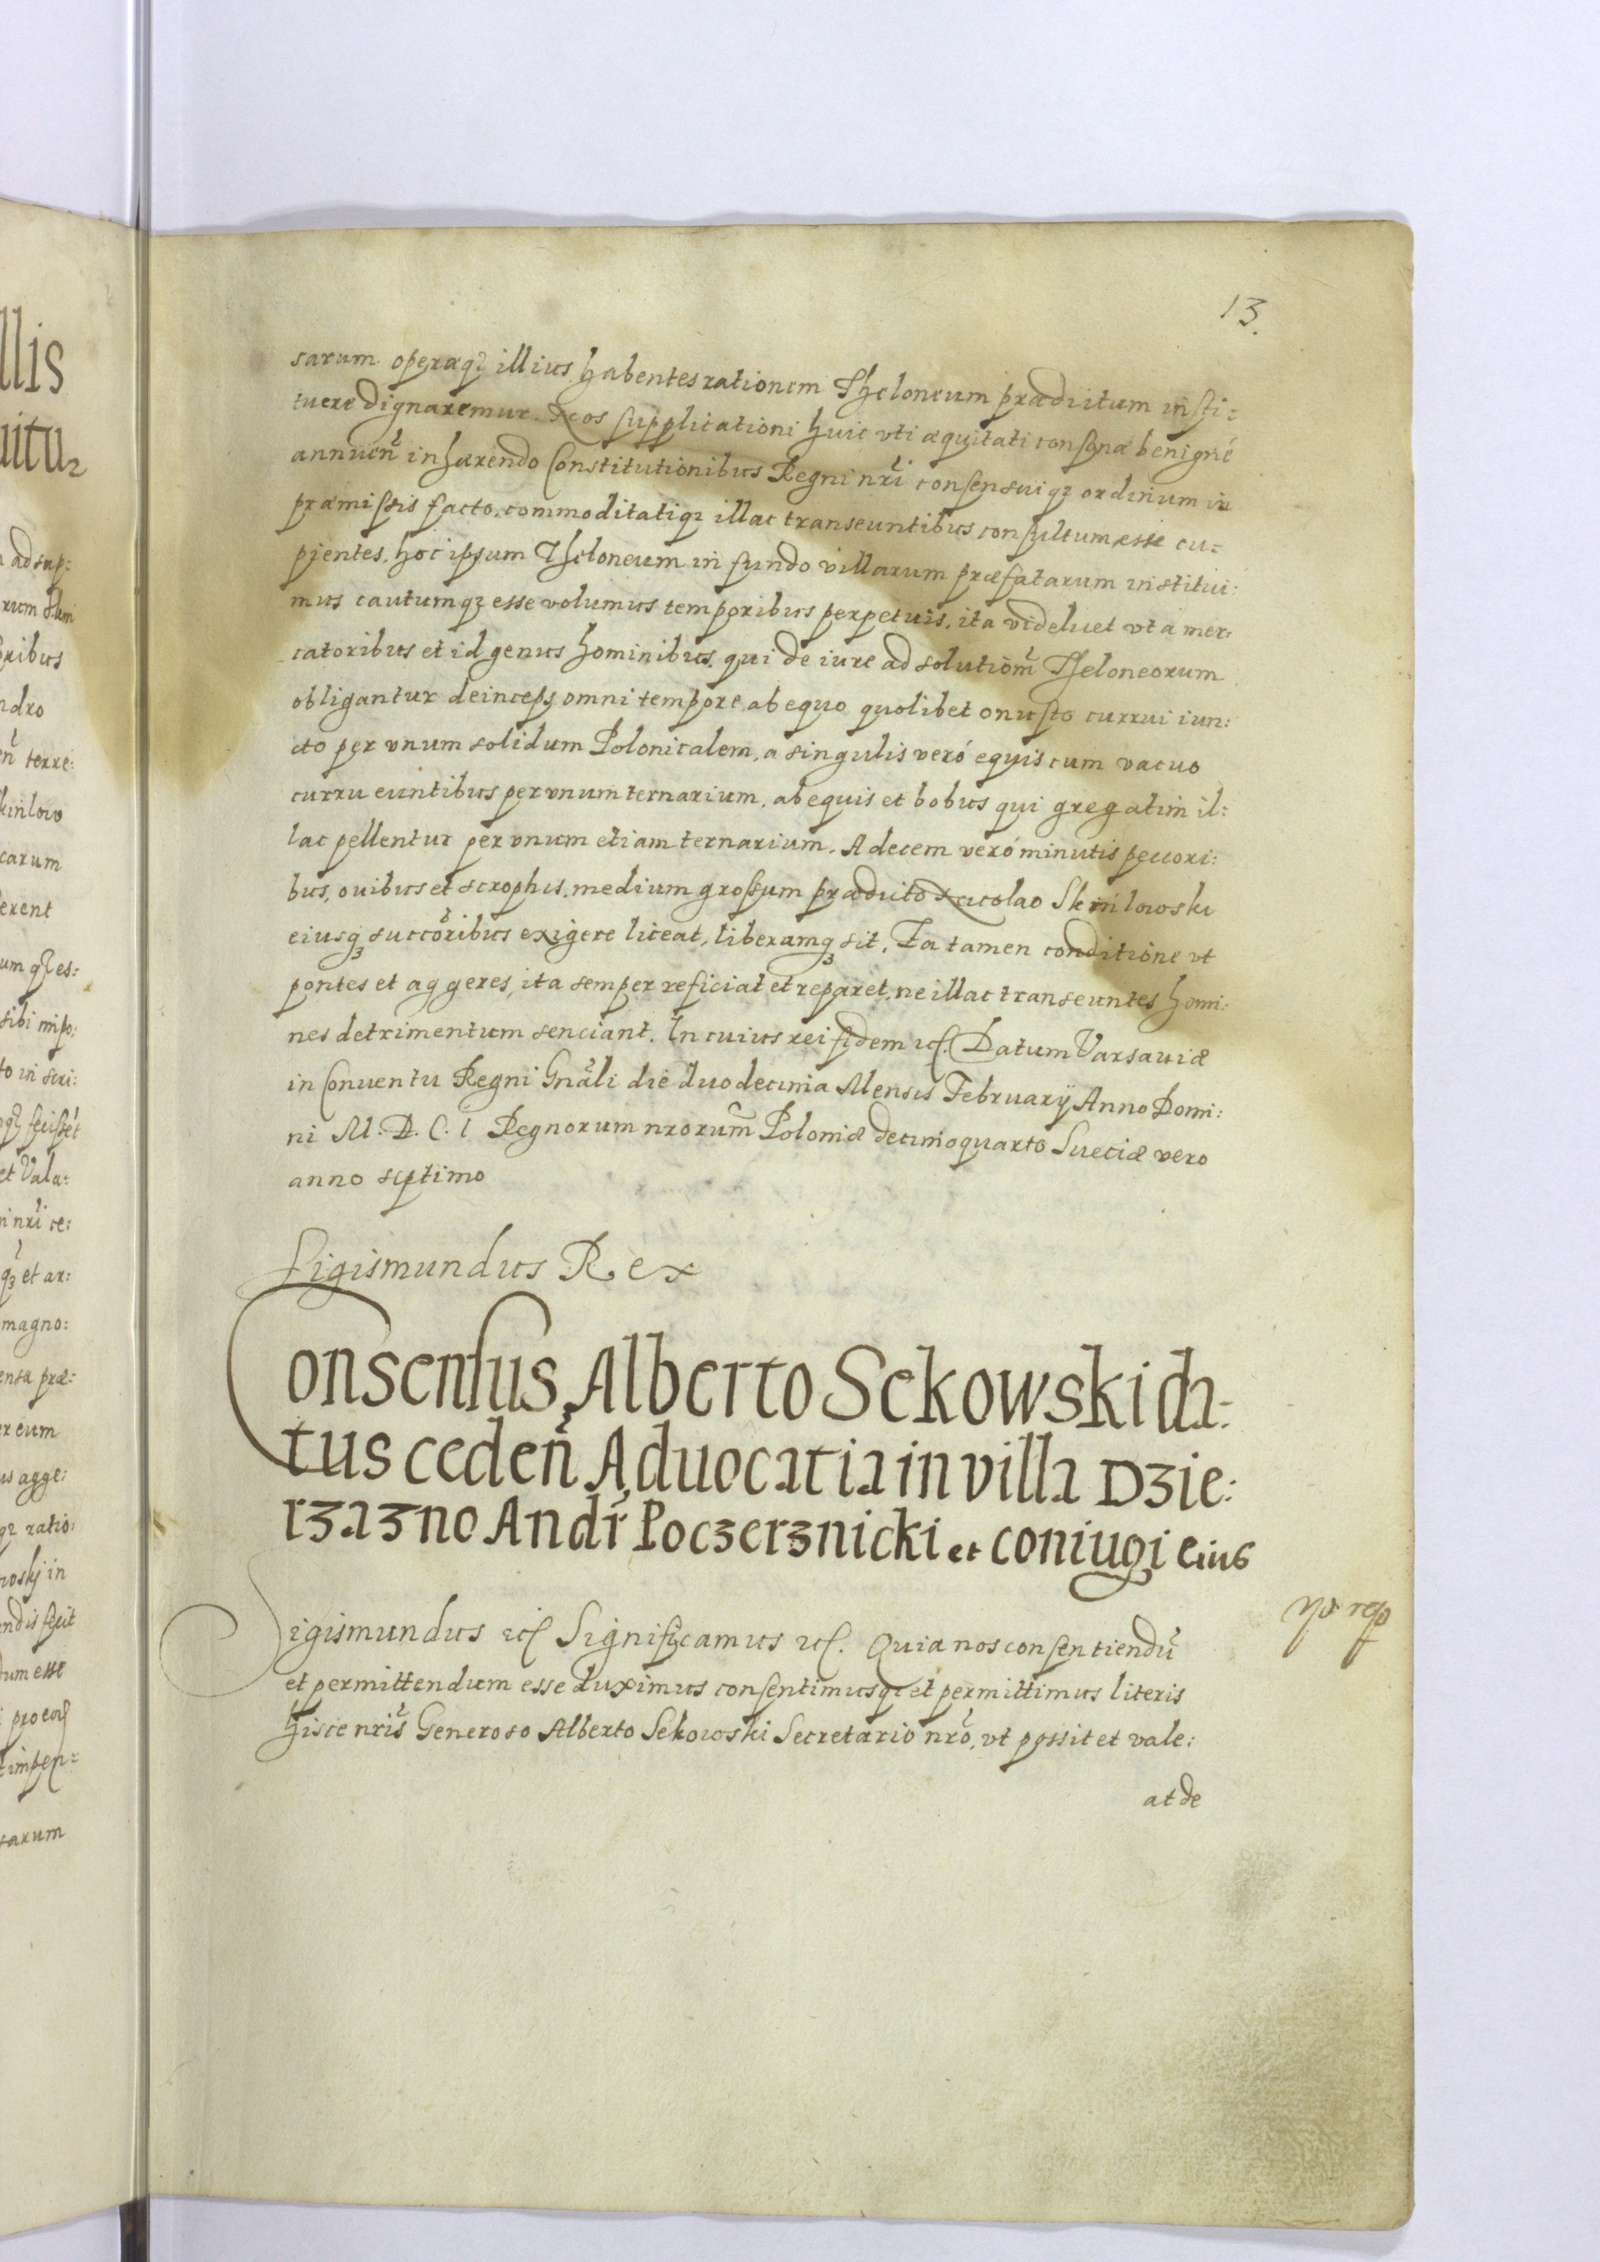 13.
sarum operaqȝ illius habentes rationem Theloneum prædictum insti:
tuere dignaremur. Nos supplicationi huic vti æquitati consonæ benigné
annuen̄ inhærendo Constitutionibus Regni nr̄i consensuiqȝ ordinum in
præmissis facto, commoditatiqȝ illac transeuntibus consultum esse cu:
pientes, hoc ipsum Theloneum in fundo villarum præfatarum institui:
mus cautumqȝ esse volumus temporibus perpetuis, ita videlicet vt a mer:
catoribus et id genus hominibus, qui de iure ad solution̄m Theloneorum
obligantur deinceps omni tempore, ab equo quolibet onusto currui iun:
cto per vnum solidum Polonicalem, a singulis veró equis cum vacuo
curru euntibus per vnum ternarium, ab equis et bobus qui gregatim il:
lac pellentur per vnum etiam ternarium. A decem veró minutis pecori:
bus, ouibus et scrophis, medium grossum prædicto Nicolao Skmilowski
eiusqȝ succōribus exigere liceat, liberumqȝ sit, Ea tamen conditione vt
pontes et aggeres, ita semper reficiat et reparet, ne illac transeuntes homi:
nes detrimentum senciant. In cuius rei fidem etc. Datum Varsauiæ
in Conuentu Regni Gnāli die duodecima Mensis Februarij Anno Domi:
ni M. D. C. I Regnorum nrorum̄ Poloniæ decimoquarto Sueciæ vero
anno septimo
Sigismundus Rex
Consensus Alberto Sekowski da:
tus ceden̄ Aduocatia in villa Dzie:
rzazno Andr̄ Poczerznicki et coniugi eius
Sigismundus etc Significamus etc. Quia nos consentiendū
et permittendum esse duximus consentimusqȝ et permittimus literis
hisce nrīs Generoso Alberto Sekowski Secretario nrō, vt possit et vale:
at de